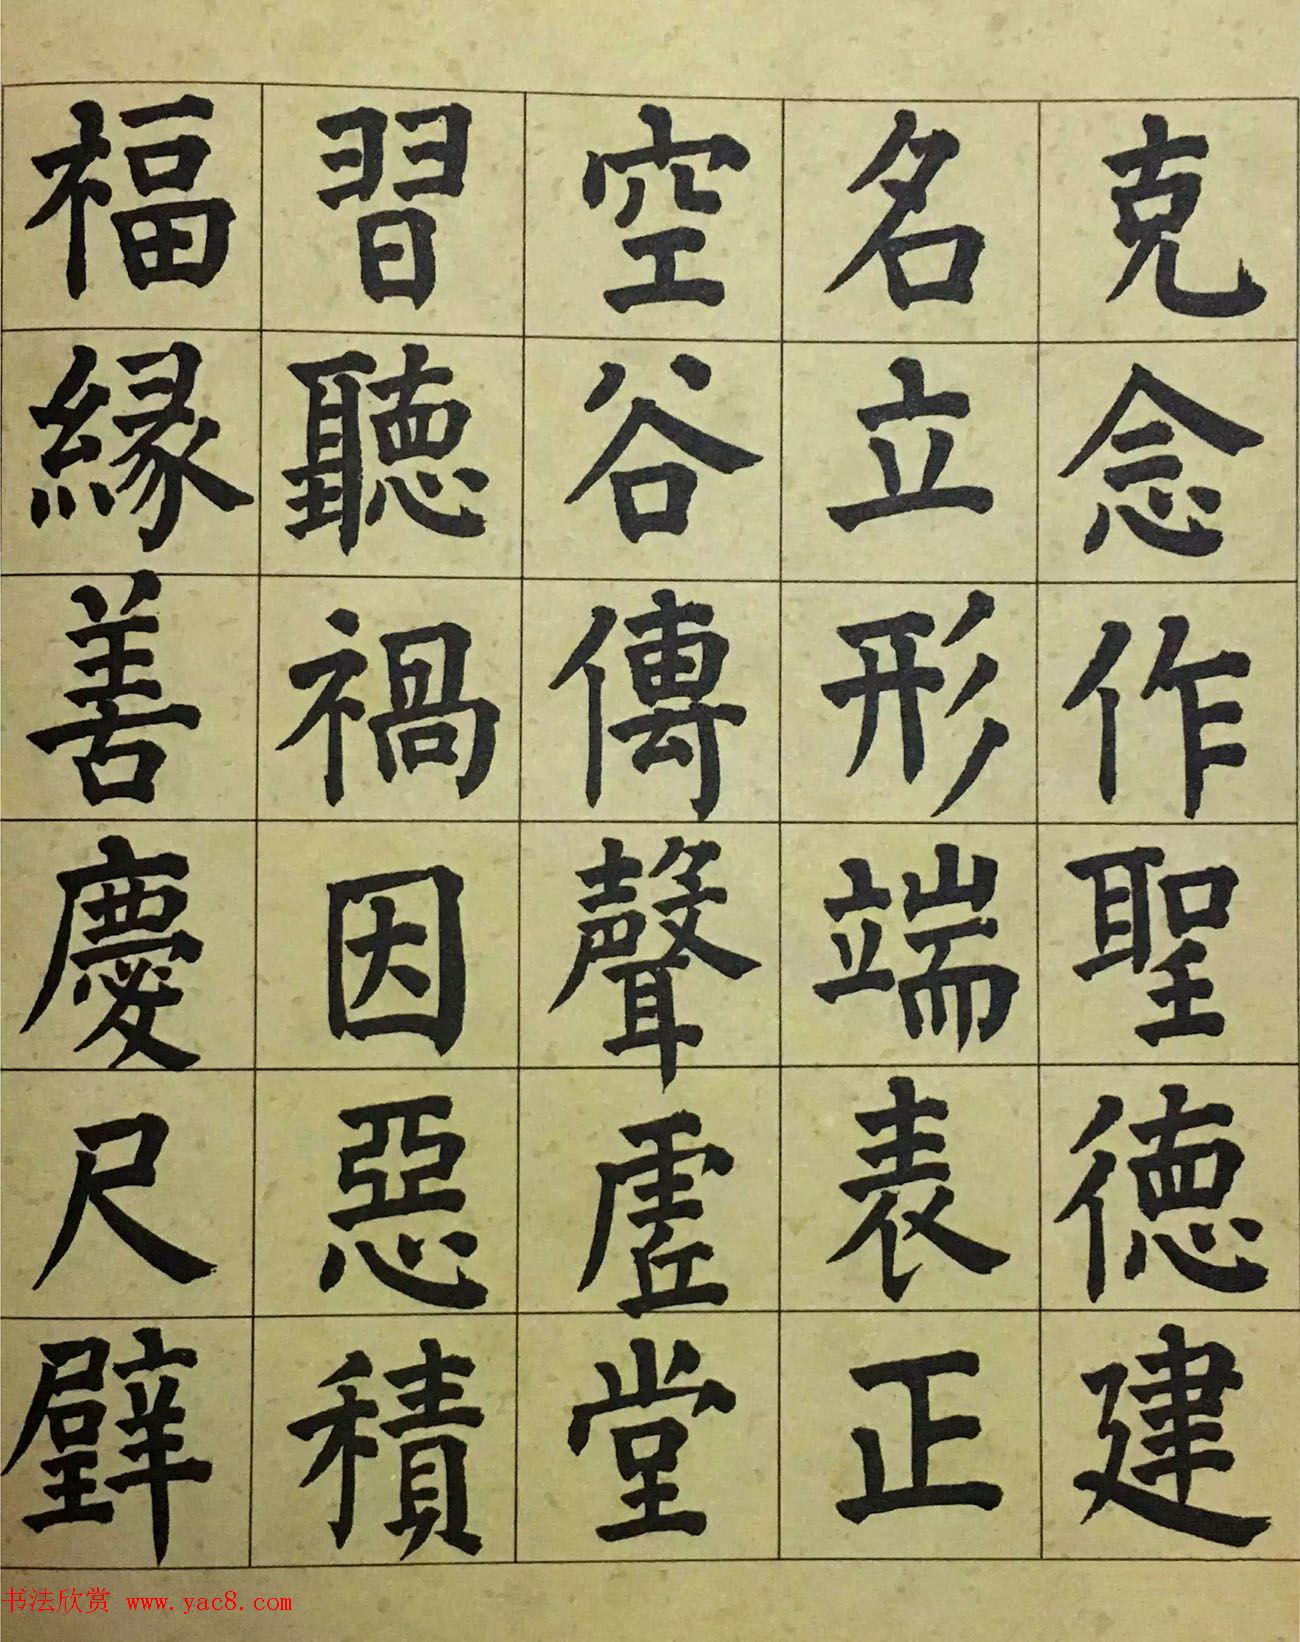 克念作聖德建
名立形端表正
空谷傳聲虛堂
習聽禍因惡積
福緣善慶尺璧
书法欣赏 www.yac8.com